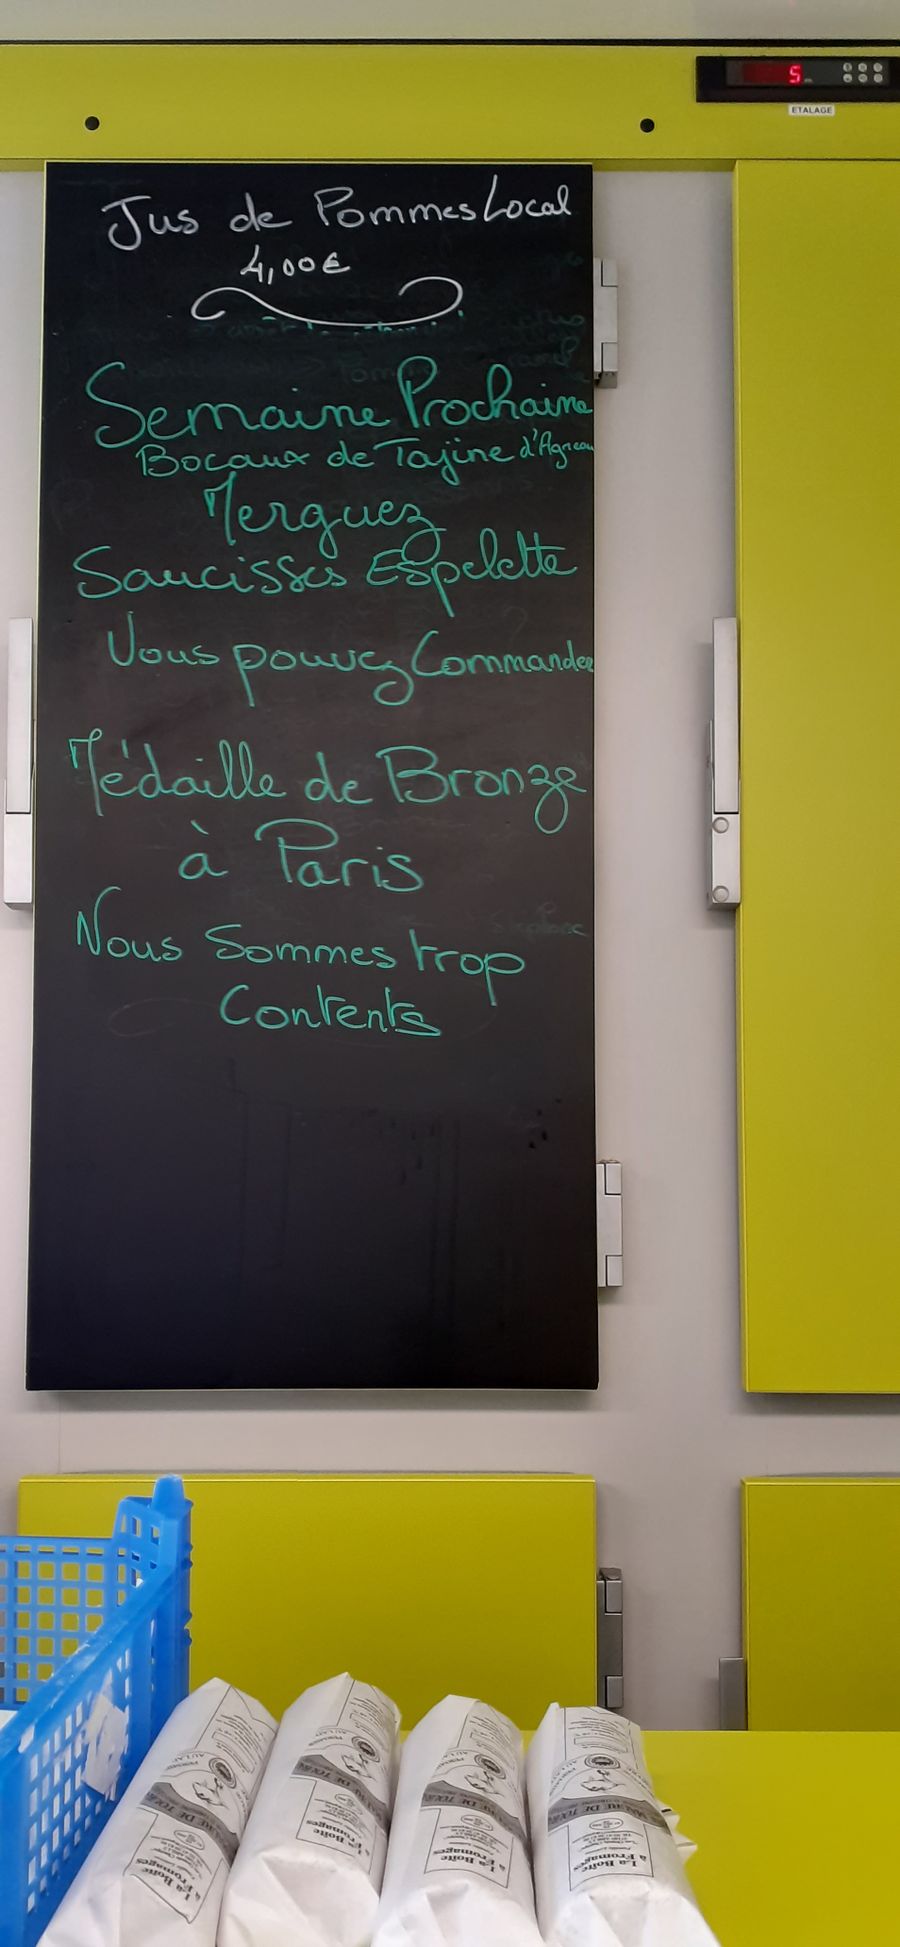 5
ETALAGE
Jus de Pommes Local
4,00€
Semaine Prochaine
Bocaux de Tajine d'Agneau
Merguez
Saucisses Espelette
Vous pouvez Commander
Médaille de Bronze
à Paris
Nous Sommes trop
Contents
La Boîte
à Fromages
La Boîte
à Fromages
La Boîte
à Fromages
La Boîte
à Fromages